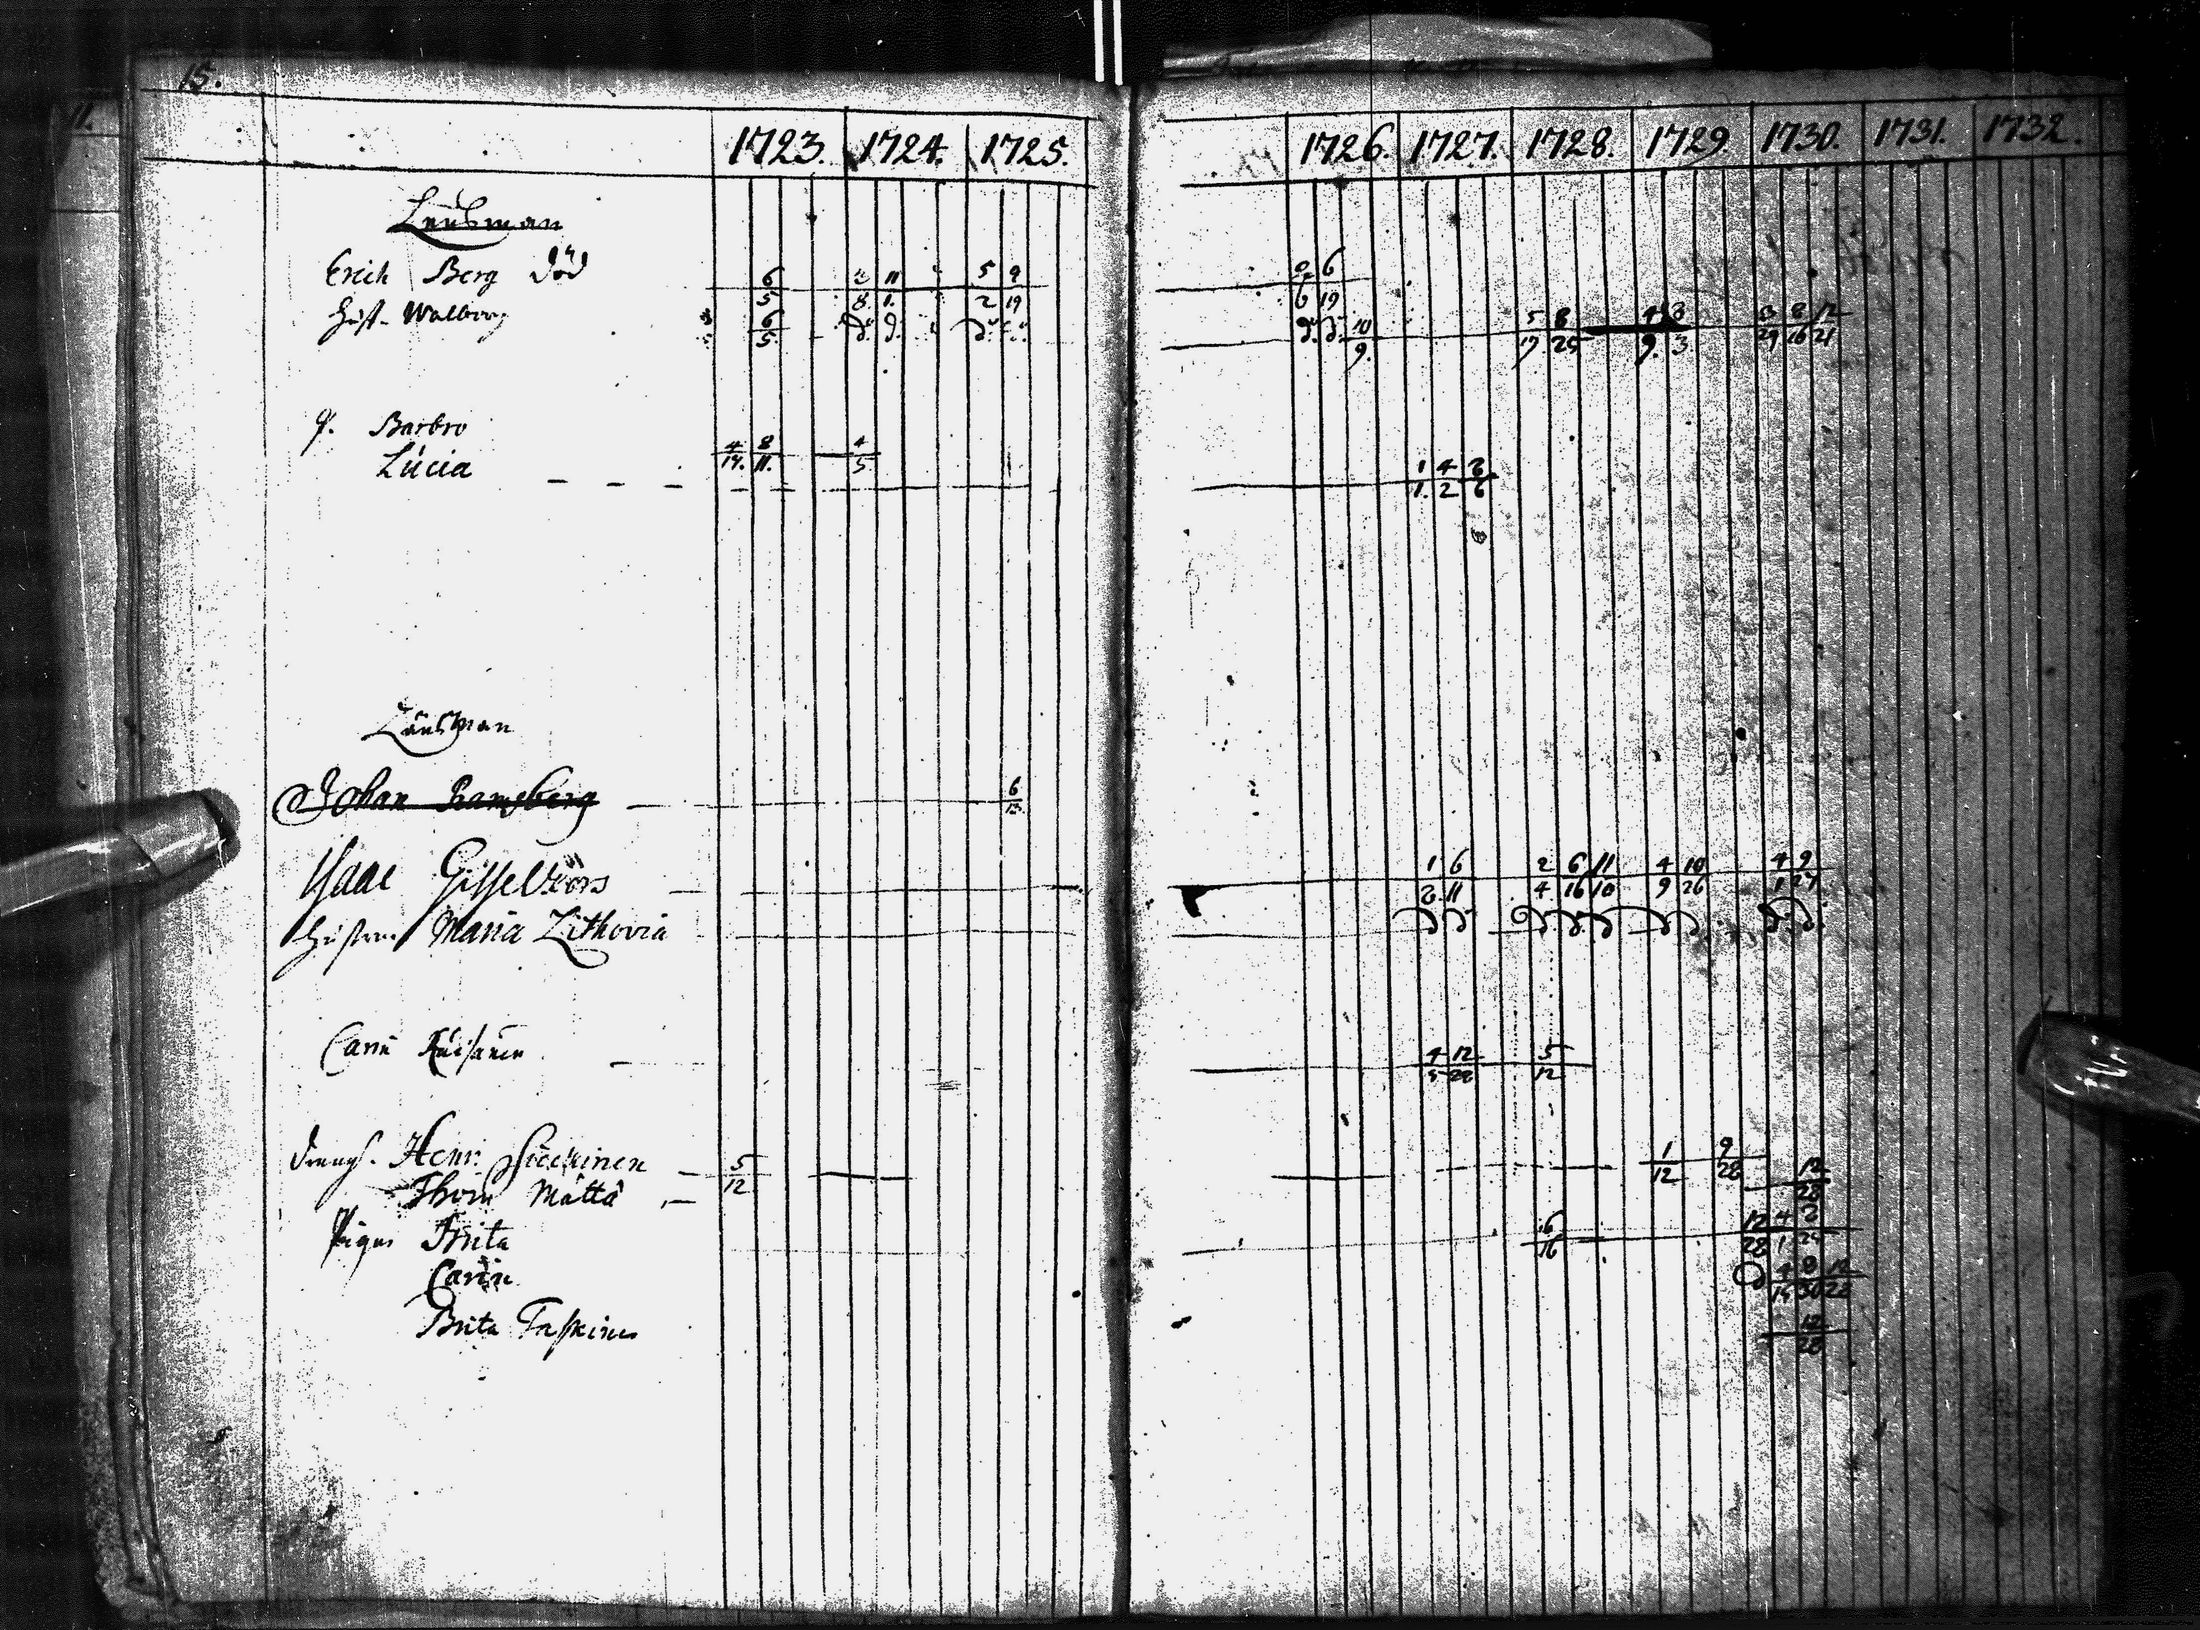 15.
1723. 1724. 1725. 1726. 1727. 1728. 1729. 1730. 1731. 1732.
Länsman
Erich Berg död
6 2 11 5 9 2 6
5 8 1. 2 19 6 19
Hust. Walborg
6 d. d. d. d. d. 10 5 8 4 8 3 8 12
5 9. 17 25 9. 3 29 16 21
P. Barbro
4 8 4
14. 11. 5
Lucia
1 4 2
1. 2 6
Länsman
Johan Ramsberg
6
13.
Isaac Gisselkors
1 6 2 6 11 4 10 4 9
2. 11 4 16 10 9 26 1 27
Hustru Maria Lithovia
d d. d. d. d d d d. d.
Carin
4 12 5
5 12
Dreng. Henr.
5 1 9
12 12 28
Thom Matts
12
28
Pigor Brita
6 12 4 2
16 28 1
Carin
d 4 8 12
15 30 28
Brita
12
28